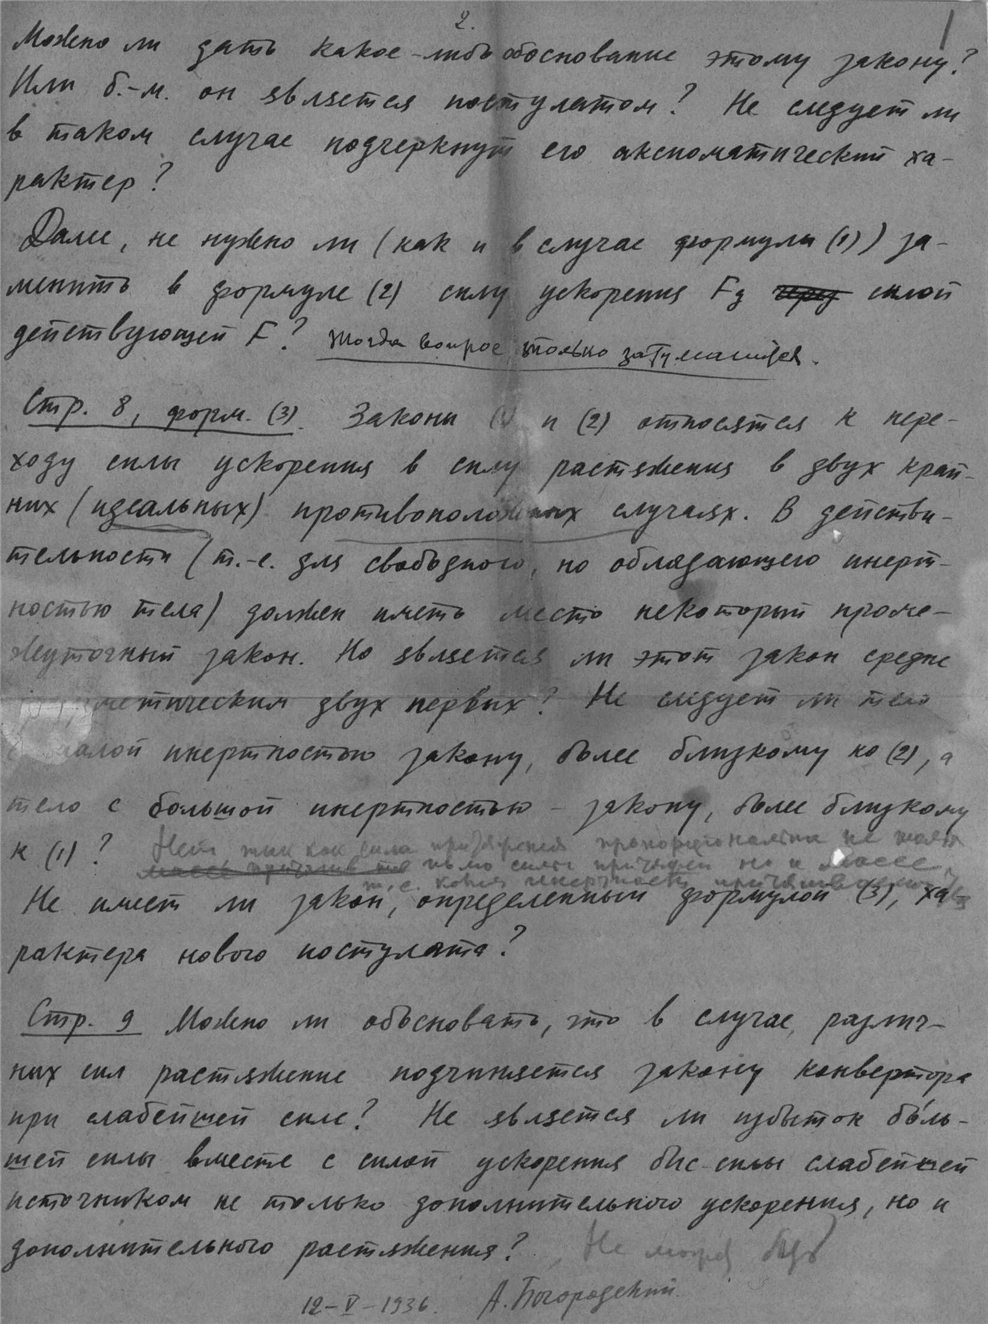 2.
Можно ли дать какое-либо обоснование этому закону?
Или б.-м. он является постулатом? Не следует ли
в таком случае подчеркнуть его аксиоматический ха-
рактер?
Далее, не нужно ли (как и в случае формулы (1)) за-
менить в формуле (2) силу ускорения Fg силой
действующей F? Тогда вопрос только затуманится.
Стр. 8, форм. (3). Законы (1) и (2) относятся к пере-
ходу силы ускорения в силу растяжения в двух край-
них (идеальных) противоположных случаях. В действи-
тельности (т.-е. для свободного, но обладающего инерт-
ностью тела) должен иметь место некоторый проме-
жуточный закон. Но является ли этот закон средне
арифметическим двух первых? Не следует ли тело
с малой инертностью закону, более близкому ко (2), а
тело с большой инертностью – закону, более близкому
к (1)? Нет так как сила притяжения пропорциональна не только
силе но и массе
т.е. инертности
Не имеет ли закон, определенный формулой (3), ха-
рактера нового постулата?
Стр. 9 Можно ли обосновать, что в случае различ-
ных сил растяжение подчиняется закону конвертора
при слабейшей силе? Не является ли избыток боль-
шей силы вместе с силой ускорения бис-силы слабейшей
источником не только дополнительного ускорения, но и
дополнительного растяжения? Не может быть
12-V-1936. А. Богородский